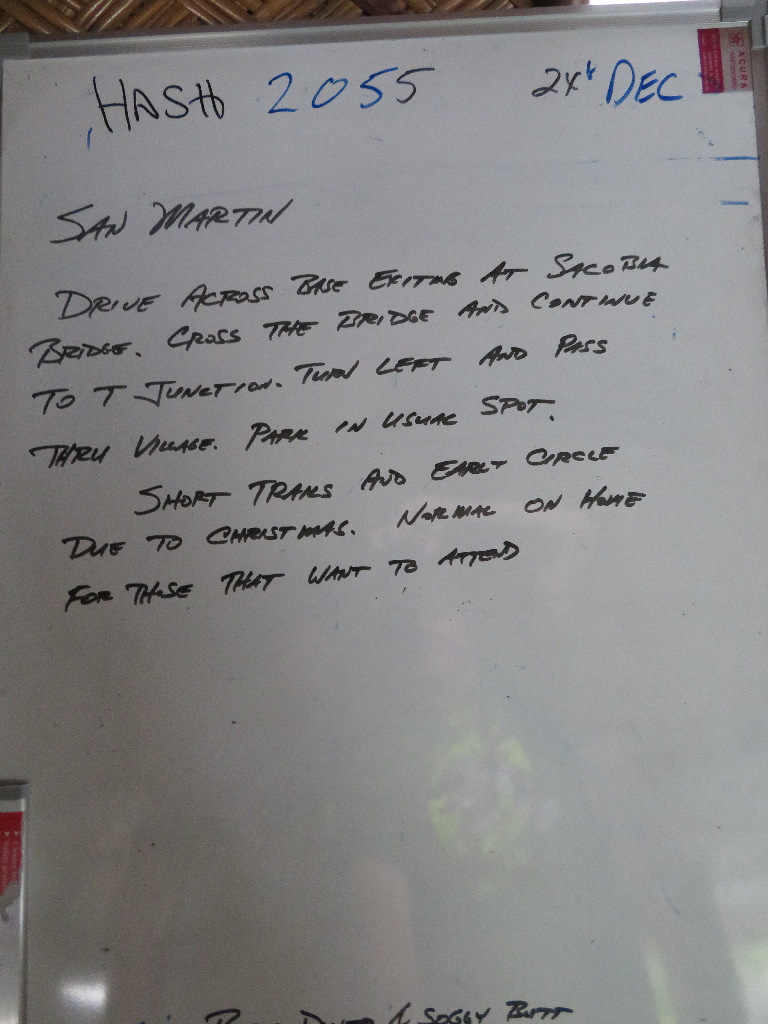 HASH 2055 24' DEC
ACURA
SAN MARTIN
DRIVE ACROSS BASE EXITING AT SACOBIA
BRIDGE. CROSS THE BRIDGE AND CONTINUE
TO T JUNCTION. TURN LEFT AND PASS
THRU VILLAGE. PARK IN USUAL SPOT.
SHORT TRAILS AND EARLY CIRCLE
DUE TO CHRISTMAS. NORMAL ON HOME
FOR THOSE THAT WANT TO ATTEND
& SOGGY BUTT